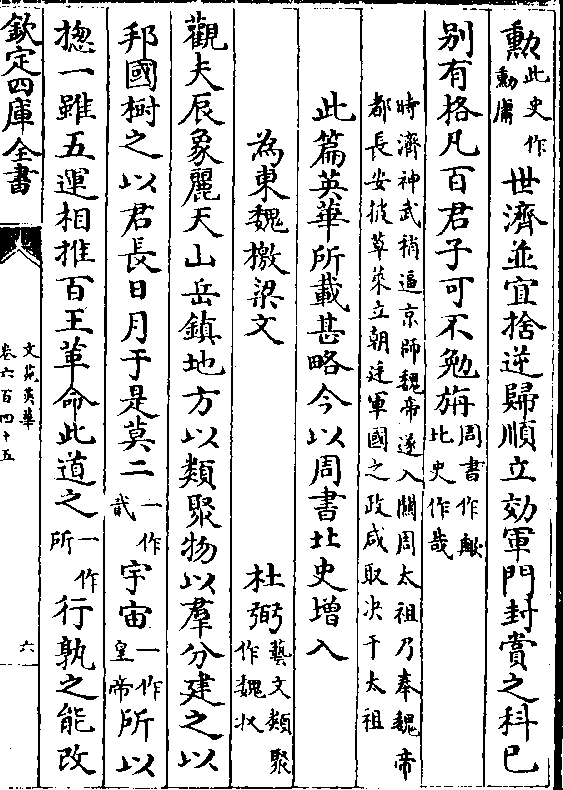 勲此史作勳庸世濟並宜捨逆歸順立効軍門封賞之科已
别有格凡百君子可不勉旃周書作歟北史作哉
時濟神武稍逼京師魏帝遂入關周太祖乃奉魏帝
都長安披草萊立朝廷軍國之政咸取决于太祖
此篇英華所載甚略今以周書北史增入
為東魏檄梁文
杜弼藝文類聚作魏收
觀夫辰象麗天山岳鎮地方以類聚物以羣分建之以
邦國樹之以君長日月于是莫二一作貳宇宙一作皇帝所以
揔一雖五運相推百王革命此道之一作所行孰之能改
欽定四庫全書
文苑英華
卷六百四十五
六